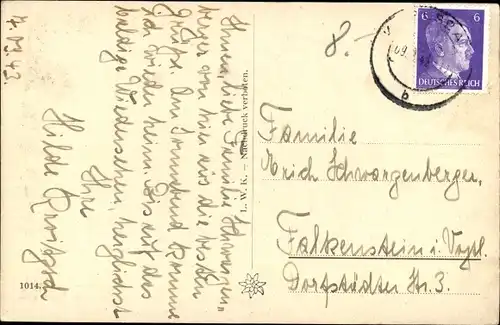 7.03.43.
Ihnen liebe Familie Schwarzen-
berger von hier aus die besten
Grüße. Am Sonnabend komme
ich wieder heim. Bis auf das
baldige Wiedersehen, herzlichst
Ihre
Hilde
L. W. K. – Nachdruck verboten.
1014.
8.-
6 6
DEUTSCHES REICH
b
Familie
Erich Schwarzenberger,
Falkenstein i. Vogtl.
Dorfstädter Str. 3.